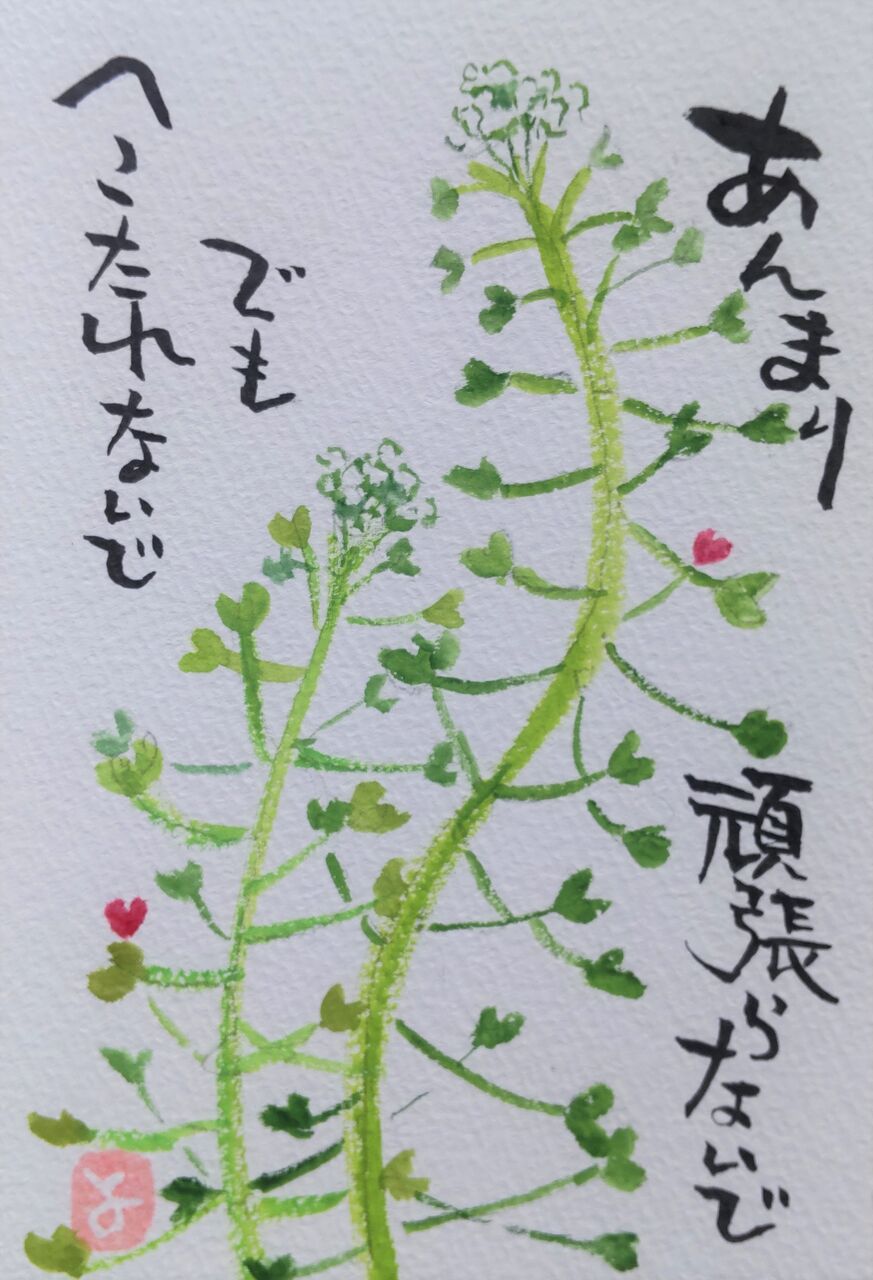 あんまり
頑張らないで
でも
へこたれないで
よ